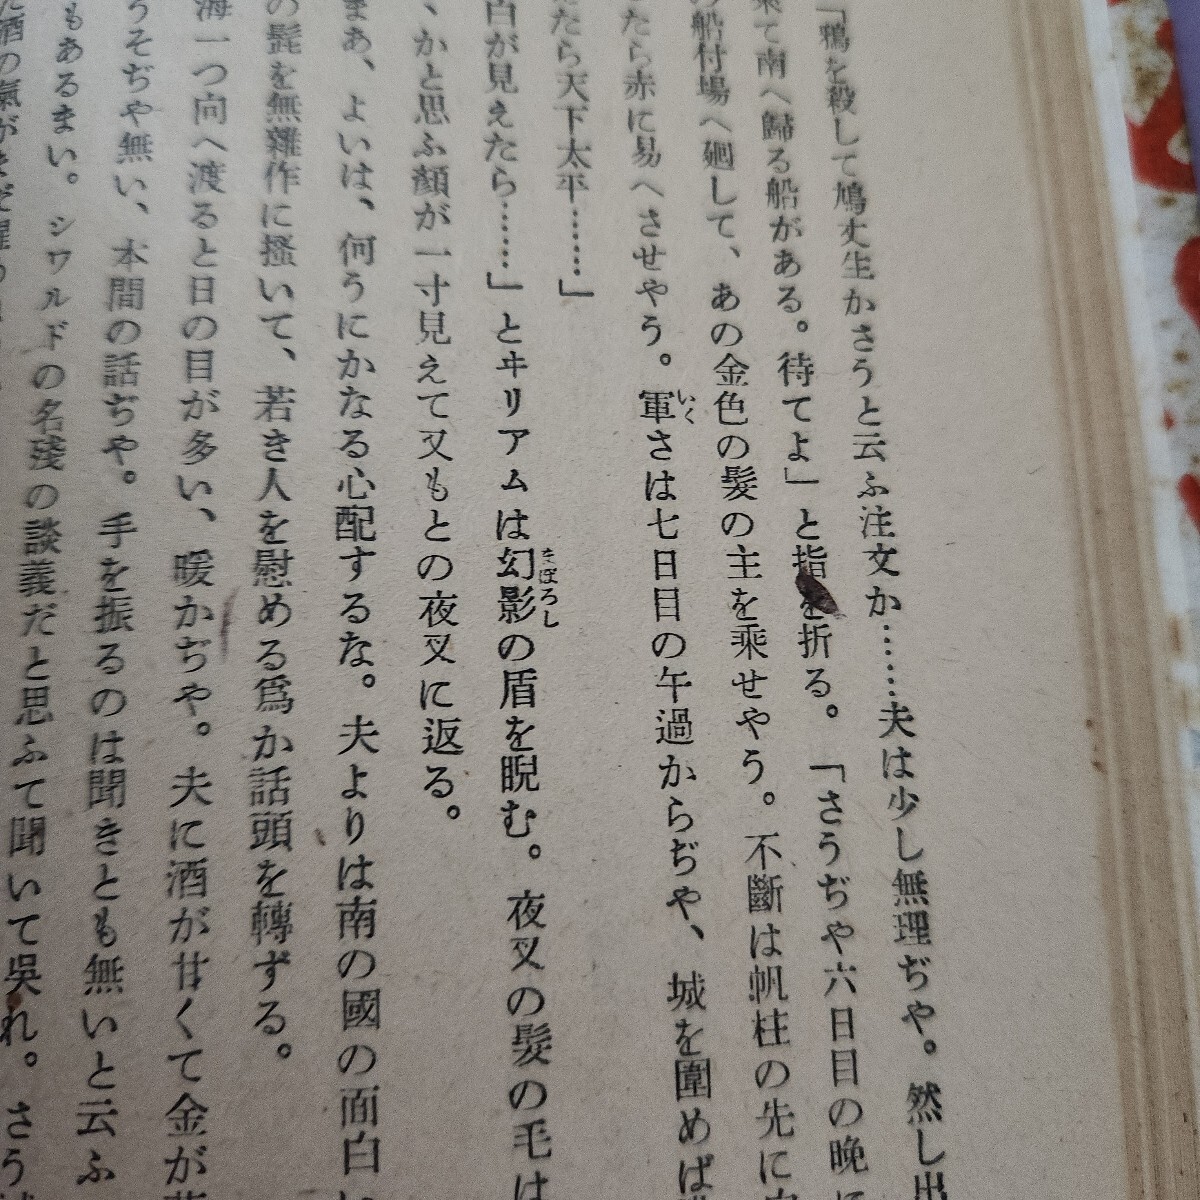 「鴉を殺して鳩丈生かさうと云ふ注文か……夫は少し無理ぢや。然し出
來て南へ歸る船がある。待てよ」と指を折る。「さうぢや六日目の晩に
の船付場へ廻して、あの金色の髮の主を乘せやう。不斷は帆柱の先に
たら赤に易へさせやう。軍さは七日目の午過からぢや、城を圍めば
いく
たら天下太平……」
白が見えたら……」とヰリアムは幻影の盾を睨む。夜叉の髮の毛は
まぼろし
、かと思ふ顏が一寸見えて又もとの夜叉に返る。
まあ、よいは、何うにかなる心配するな。夫よりは南の國の面白い
の髭を無雜作に搔いて、若き人を慰める爲か話頭を轉ずる。
海一つ向へ渡ると日の目が多い、暖かぢや。夫に酒が甘くて金が
うそぢや無い、本間の話ぢや。手を振るのは聞きとも無いと云ふ
もあるまい。シワルドの名殘の談義だと思ふて聞いて吳れ。さう
酒の氣がまだ